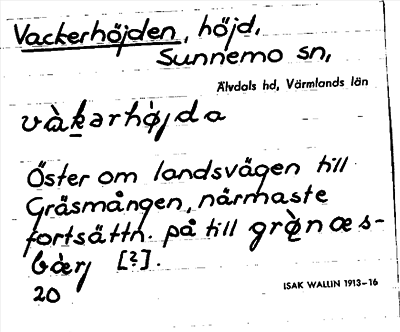 Vackerhöjden, höjd,
Sunnemo sn,
Älvdals hd, Värmlands län
vàkərhø̀jda
Öster om landsvägen till
Gräsmången, närmaste
fortsättn. på till grænæs-
bærj [?].
20
ISAK WALLIN 1913-16